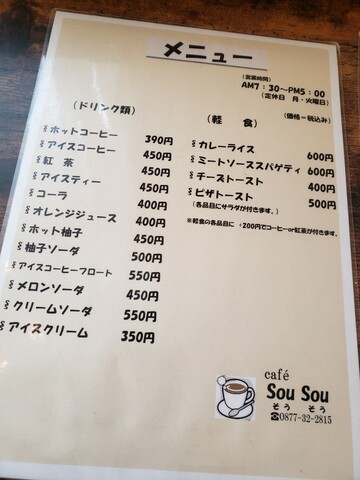 メニュー
(営業時間)
AM7:30~PM5:00
(定休日 月・火曜日)
(ドリンク類)
ホットコーヒー 390円
アイスコーヒー 450円
紅 茶 450円
アイスティー 450円
コーラ 400円
オレンジジュース 400円
ホット柚子 450円
柚子ソーダ 500円
アイスコーヒーフロート 550円
メロンソーダ 450円
クリームソーダ 550円
アイスクリーム 350円
(軽 食)
(価格=税込み)
カレーライス 600円
ミートソーススパゲティ 600円
チーズトースト 400円
ピザトースト 500円
(各品目にサラダが付きます。)
※軽食の各品目に +200円でコーヒーor紅茶が付きます。
café
Sou Sou
そう そう
☎0877-32-2815